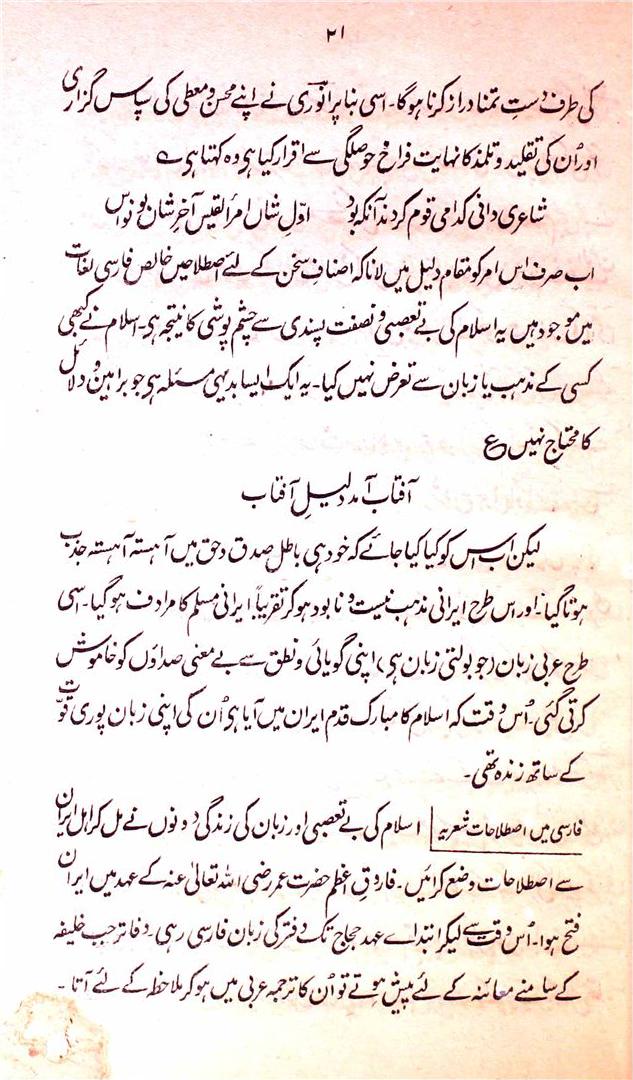 ۲۱
کی طرف دستِ تمنا دراز کرنا ہوگا۔ اسی بنا پر انوری نے اپنے محسن و معطی کی سپاس گزاری
اور اُن کی تقلید و تلمذ کا نہایت فراخ حوصلگی سے اقرار کیا ہی وہ کہتا ہی ؎
شاعری دانی کدامی قوم کردند آنکہ بود اوّلِ شاں امرأ القیس آخرِ شان بونواس
اب صرف اس امر کو مقام دلیل میں لانا کہ اصنافِ سخن کے لئے اصطلاحیں خالص فارسی لغات
میں موجود ہیں یہ اسلام کی بے تعصبی و نصفت پسندی سے چشم پوشی کا نتیجہ ہی۔ اسلام نے کبھی
کسی کے مذہب یا زبان سے تعرض نہیں کیا۔ یہ ایک ایسا بدیہی مسئلہ ہی جو براہین و دلائل
کا محتاج نہیں ع
آفتاب آمد دلیلِ آفتاب
لیکن اب اس کو کیا کیا جائے کہ خود ہی باطل صدق و حق میں آہستہ آہستہ جذب
ہوتا گیا۔ اور اس طرح ایرانی مذہب نیست و نابود ہو کر تقریباً ایرانی مسلم کا مرادف ہو گیا۔ اسی
طرح عربی زبان (جو بولتی زبان ہی) اپنی گویائی و نطق سے بے معنی صداؤں کو خاموش
کرتی گئی۔ اُس وقت کہ اسلام کا مبارک قدم ایران میں آیا ہی اُن کی اپنی زبان پوری قوّت
کے ساتھ زندہ تھی۔
فارسی میں اصطلاحات شعریہ | اسلام کی بے تعصبی اور زبان کی زندگی دونوں نے مل کر اہل ایران
سے اصطلاحات وضع کرائیں۔ فاروقِ اعظم حضرت عمر رضی اللہ تعالیٰ عنہ کے عہد میں ایران
فتح ہوا۔ اُس وقت سے لیکر ابتداے عہد حجاج تک دفتر کی زبان فارسی رہی۔ دفاتر جب خلیفہ
کے سامنے معائنہ کے لئے پیش ہوتے تو اُن کا ترجمہ عربی میں ہو کر ملاحظہ کے لئے آتا۔